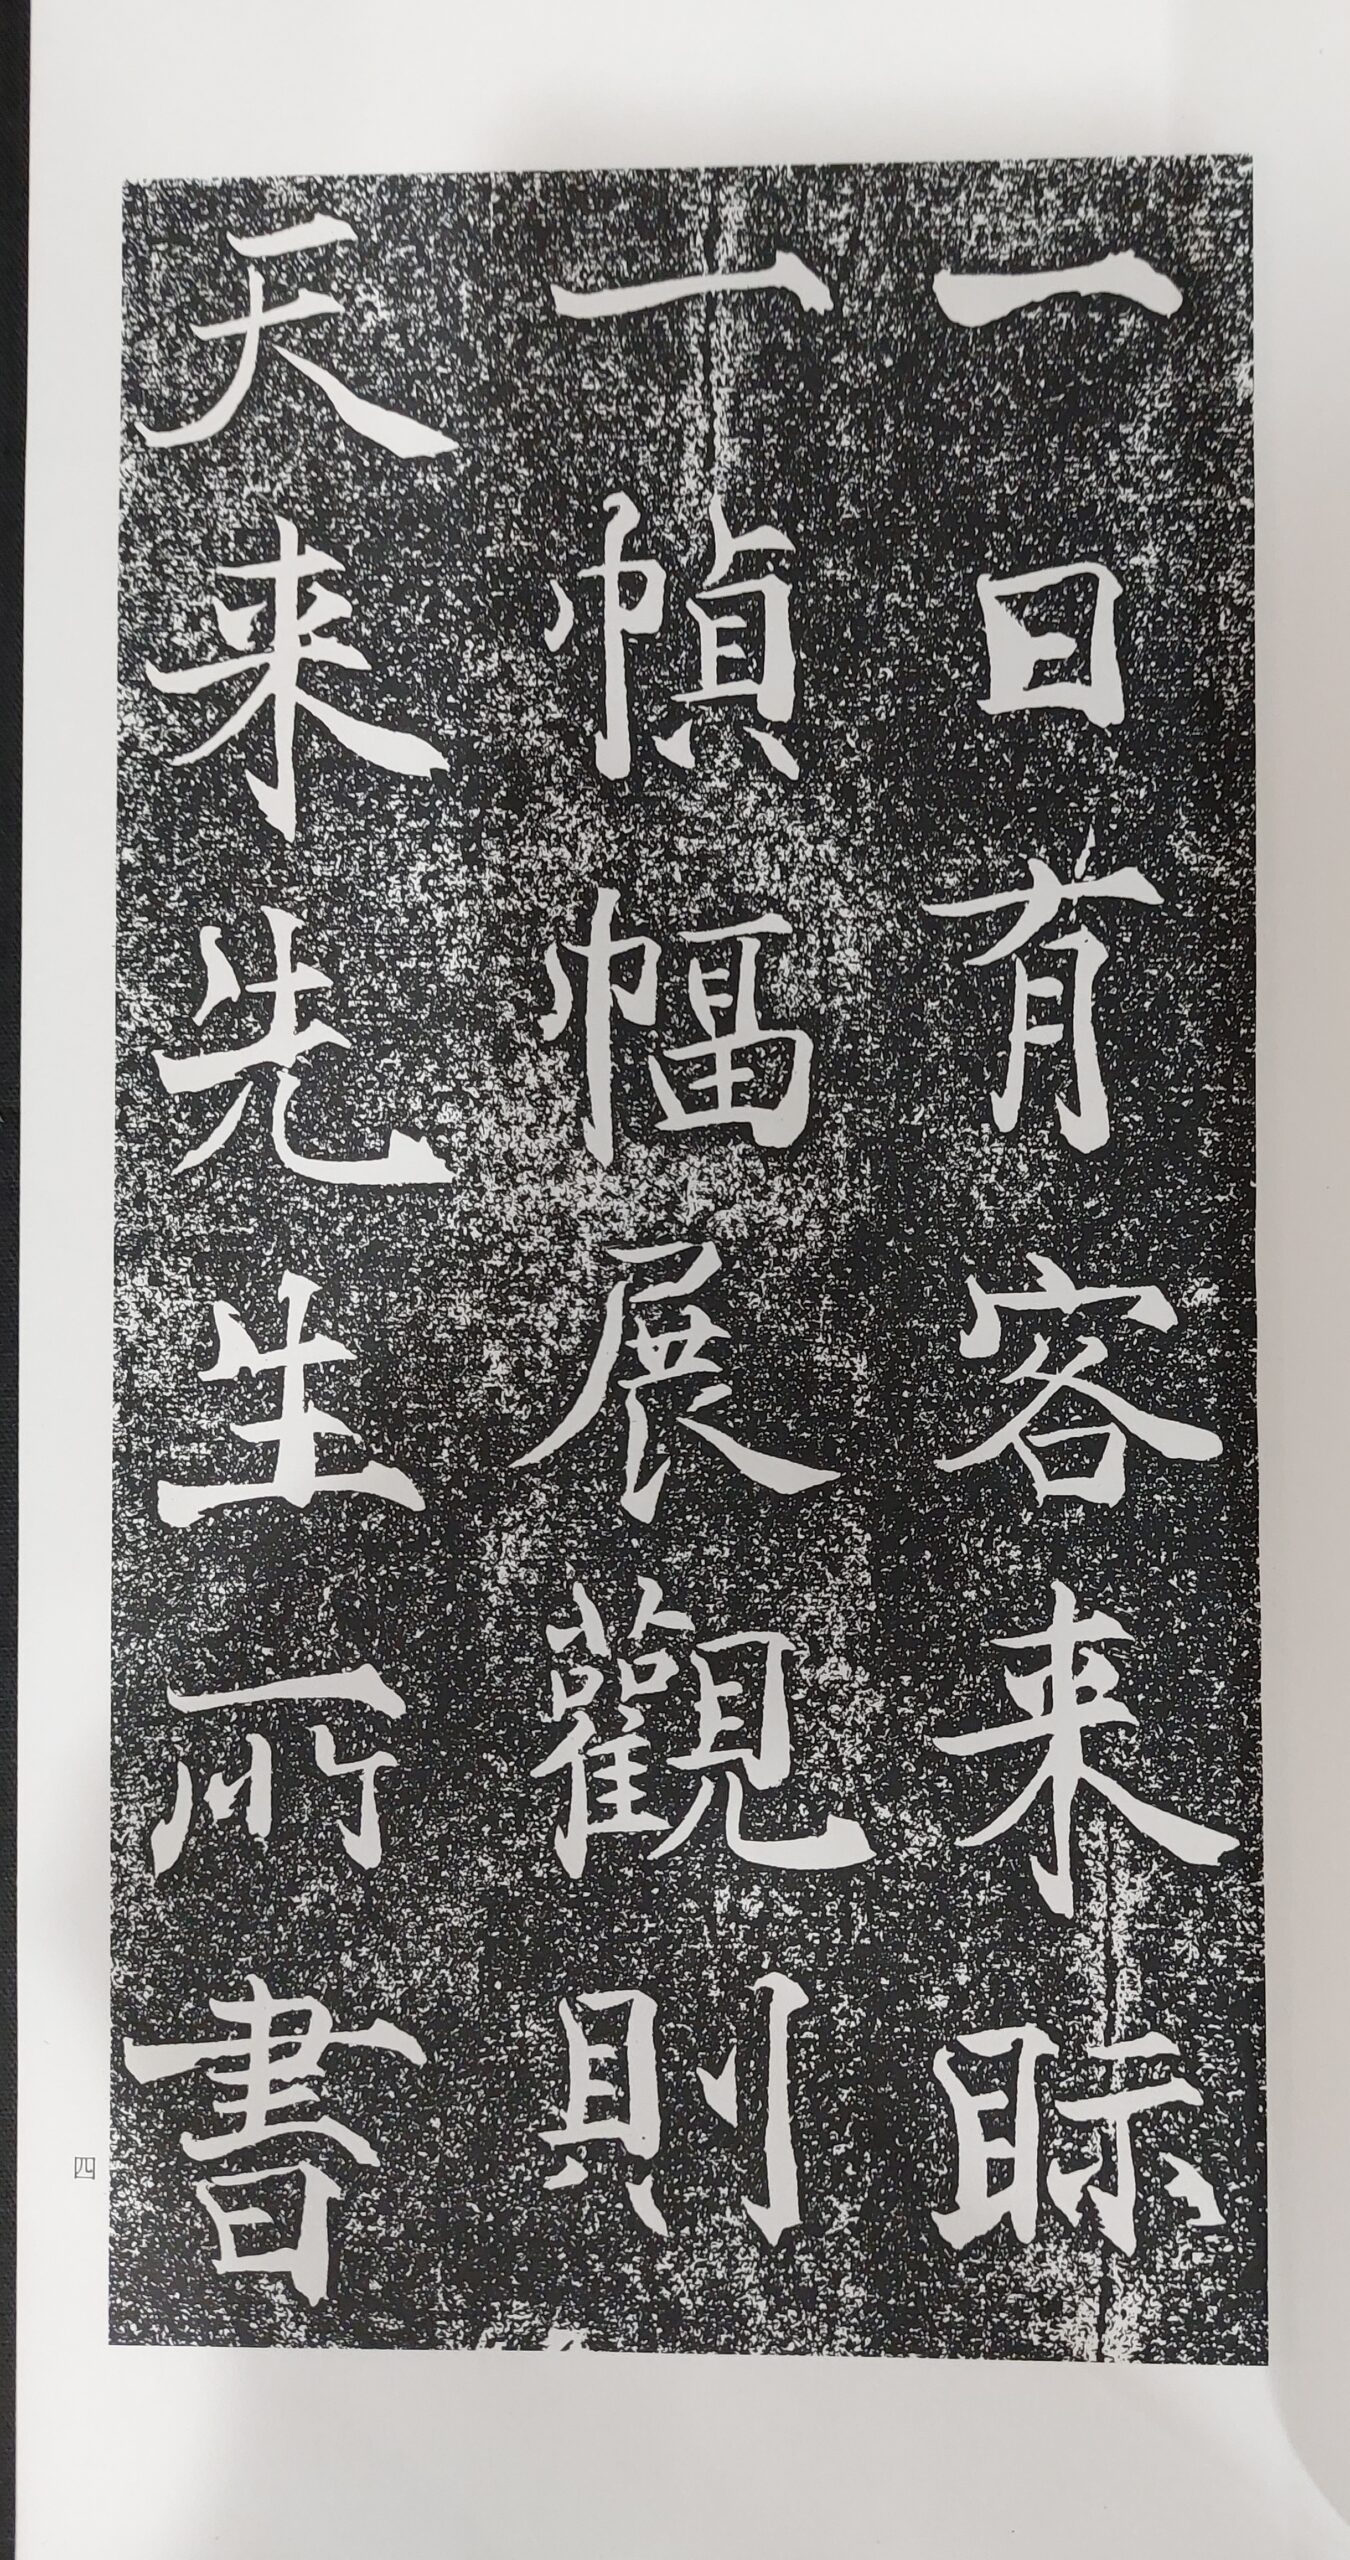 一日有客来眎
一幀幅展觀則
天来先生所書
四